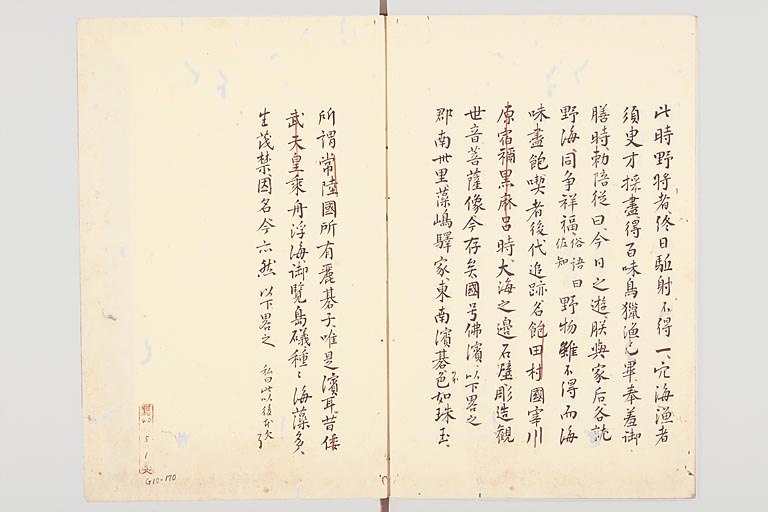 此時野狩者終日駈射不得一宍海漁者
須臾才採盡得百味鳥獵漁已畢奉羞御
膳時勅陪從曰今日之遊朕與家后各就
野海同争祥福俗語曰佐知野物雖不得而海
味盡飽喫者後代追跡名飽田村國宰川
原宿禰黒麻呂時大海之邊石壁彫造観
世音菩薩像今存矣國号佛濱以下畧之
郡南卅里藻嶋驛家東南濱碁色如珠玉
所謂常陸國所有麗碁子唯是濱耳昔倭
武天皇乗舟浮海御覧島礒種〻海藻多
生茂禁因名今亦然以下畧之
私曰此以後本欠
了
40
5
1
G10-170